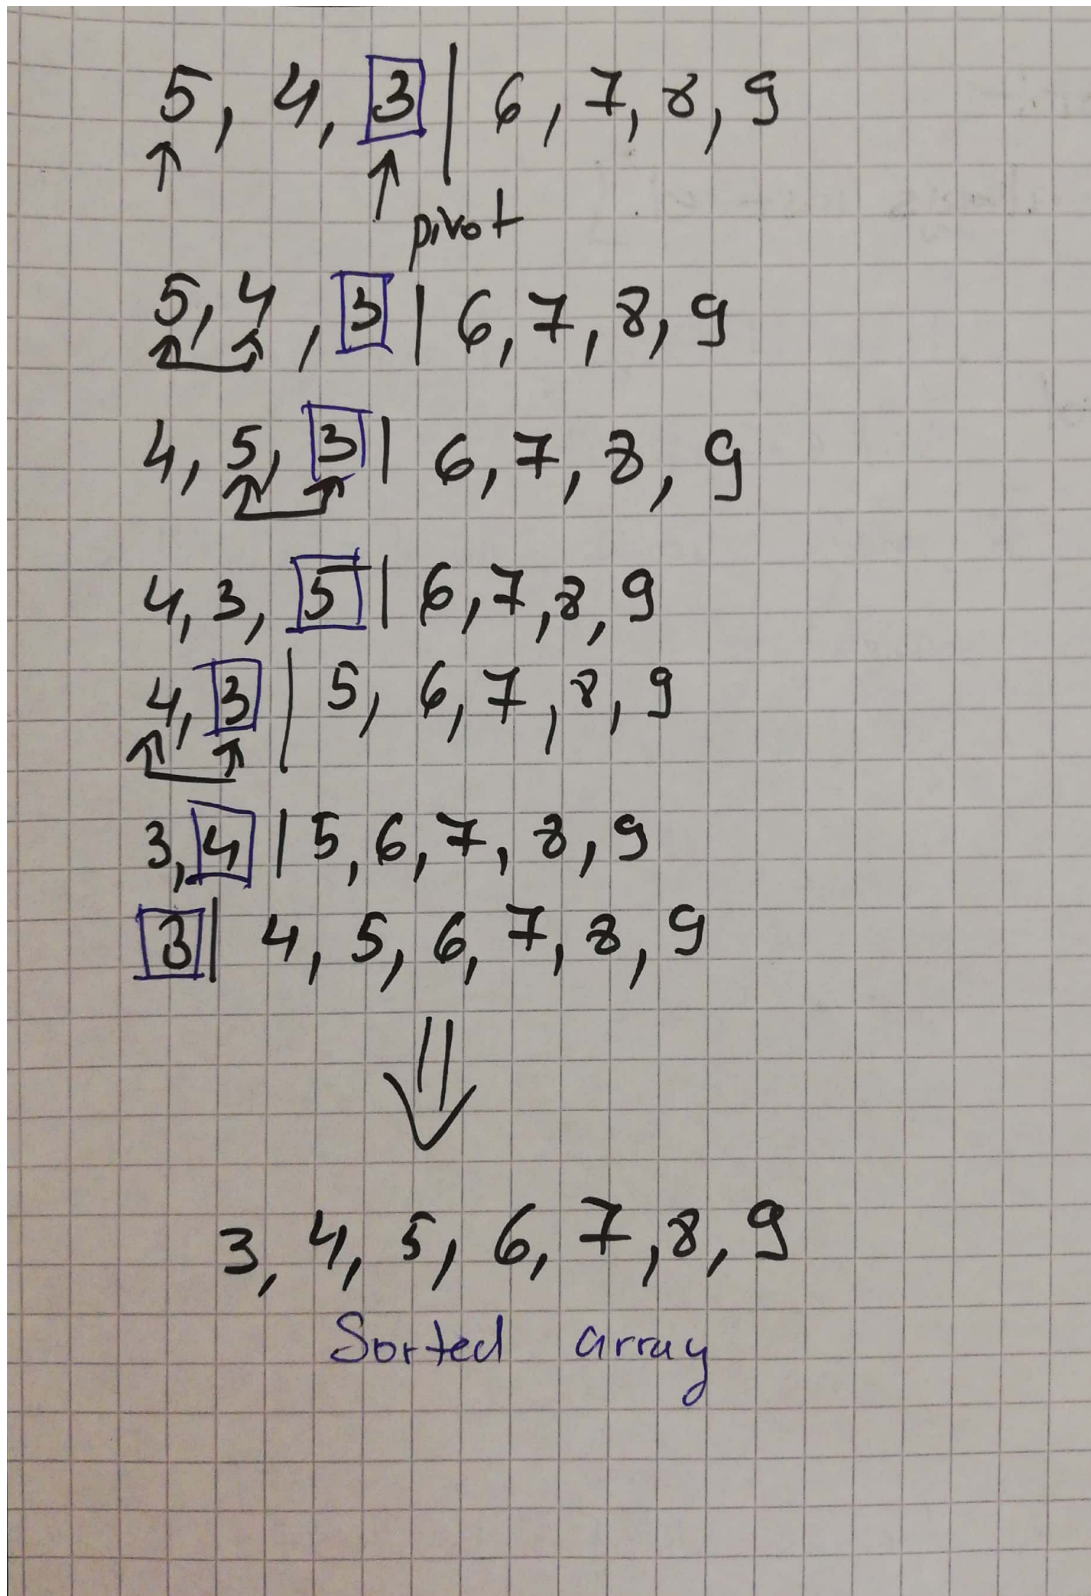 5, 4, 3 | 6, 7, 8, 9
pivot
5, 4, 3 | 6, 7, 8, 9
4, 5, 3 | 6, 7, 8, 9
4, 3, 5 | 6, 7, 8, 9
4, 3 | 5, 6, 7, 8, 9
3, 4 | 5, 6, 7, 8, 9
3 | 4, 5, 6, 7, 8, 9
3, 4, 5, 6, 7, 8, 9
Sorted array